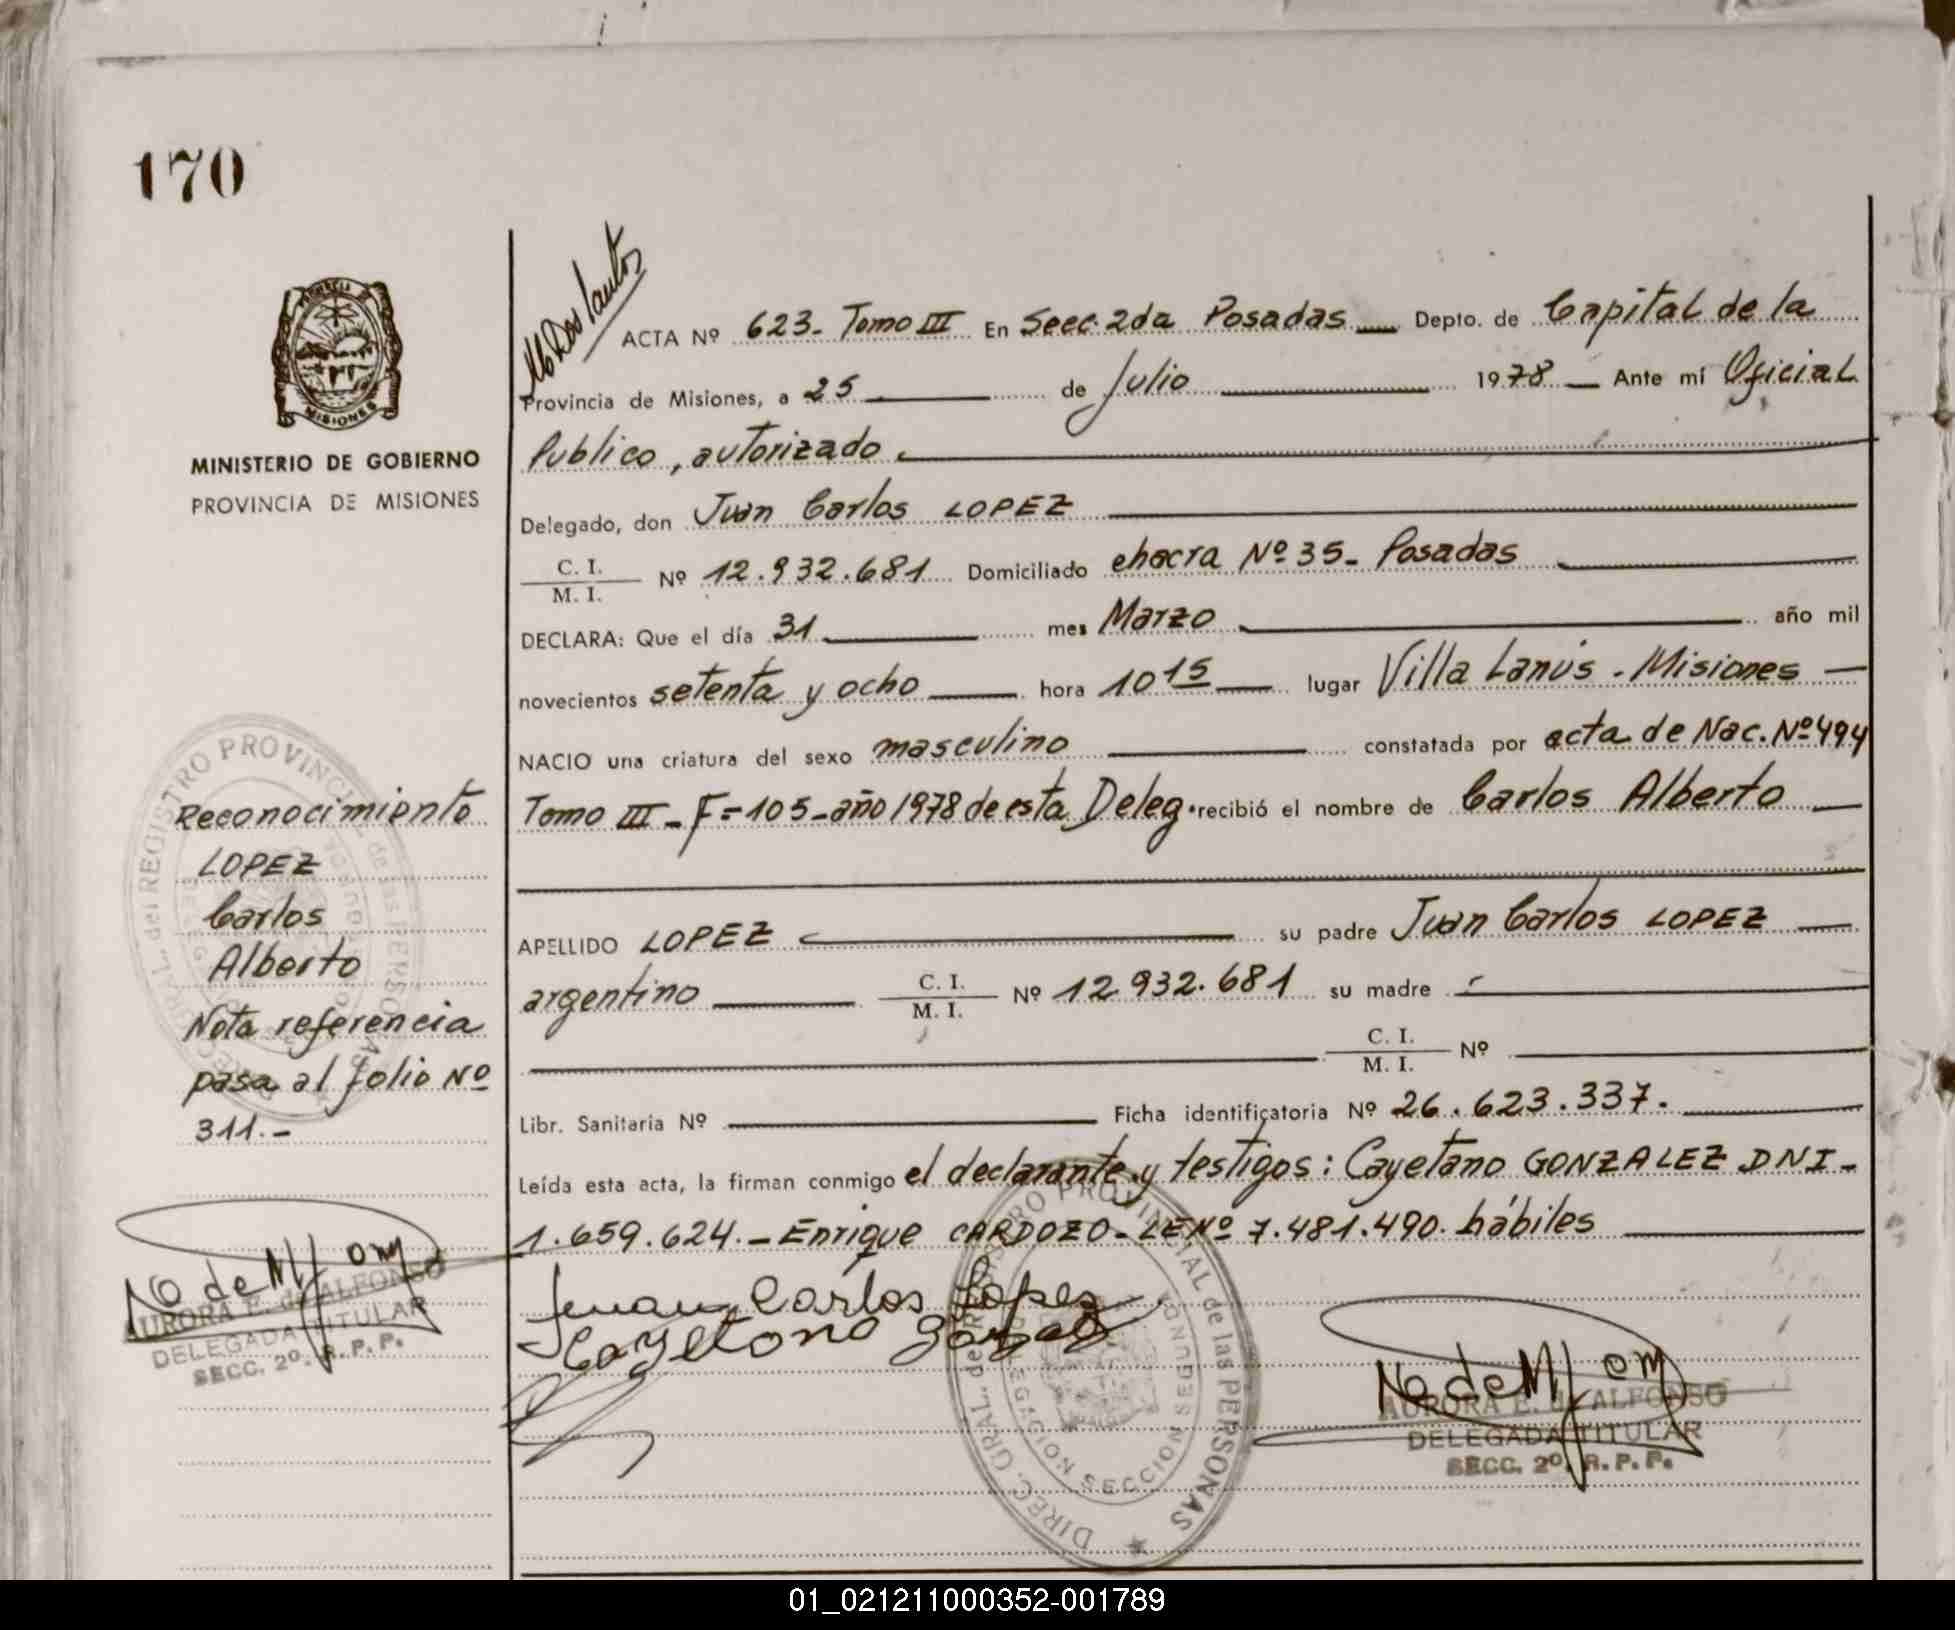 170
MISIONES
MINISTERIO DE GOBIERNO
PROVINCIA DE MISIONES
Reconocimiento
LOPEZ
Carlos
Alberto
Nota referencia
pasa al folio Nº
311.-
AURORA E. de ALFONSO
DELEGADA TITULAR
SECC. 2º. R. P. P.
M Dos Santos
ACTA Nº 623- Tomo III En Secc. 2da Posadas Depto. de Capital de la
Provincia de Misiones, a 25 de Julio 1978 Ante mí Oficial
Publico, autorizado
Delegado, don Juan Carlos LOPEZ
C. I. / M. I. Nº 12.932.681 Domiciliado chacra Nº 35- Posadas
DECLARA: Que el día 31 mes Marzo año mil
novecientos setenta y ocho hora 10 15 lugar Villa Lanús - Misiones
NACIO una criatura del sexo masculino constatada por acta de Nac. Nº 494
Tomo III - F= 105-año 1978 de esta Deleg. recibió el nombre de Carlos Alberto
APELLIDO LOPEZ su padre Juan Carlos LOPEZ
argentino C. I. / M. I. Nº 12.932.681 su madre
C. I. / M. I. Nº
Libr. Sanitaria Nº Ficha identificatoria Nº 26.623.337.
Leída esta acta, la firman conmigo el declarante y testigos: Cayetano GONZALEZ DNI-
1.659.624.- Enrique CARDOZO- LE Nº 7.481.490. hábiles
Juan Carlos Lopez
Cayetano
DIREC. GRAL. del REGISTRO PROVINCIAL de las PERSONAS
DELEGACION SECCION SEGUNDA
AURORA E. de ALFONSO
DELEGADA TITULAR
SECC. 2º. R. P. P.
01_021211000352-001789